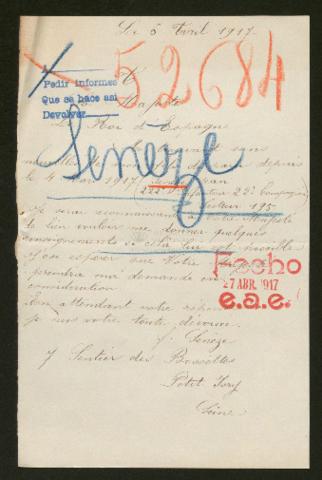 5 Avril 1917.
52684
A
Pedir informes
Que se hace asi
Devolver
Majesté
Le Roi d'Espagne
Senèze
sans
nouvelles de depuis
le 4 1917 Jean
22e Compagnie
Secteur 195
reconnaissant à Votre Majesté
de bien vouloir me donner quelques
renseignements si cela lui est possible
espérer que Votre
prendra ma demande en
considération
En attendant votre réponse
je suis votre toute dévouée
Fecho
27 ABR. 1917
e.a.e.
J. Senèze
7 Sentier des
Petit Ivry
Seine